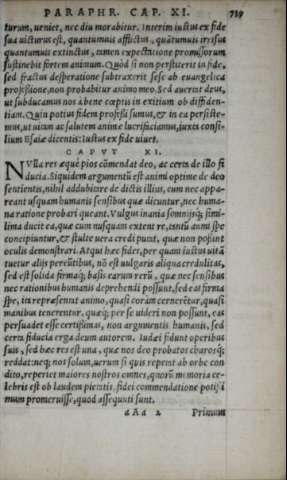 PARAPHR. CAP. XI. 739
turum, ueniet, nec diu morabitur. Interim iustus ex fide
sua uicturus est, quantumuis afflictus, quātumuis irrisus
quantumuis extinctus, tamen expectatione promissorum
sustinebit fortem animum. Quòd si non perstiterit in fide,
sed fractus desperatione subtraxerit sese ab euangelica
professione, non probabitur animo meo. Sed auertat deus,
ut subducamus nos abene cœptis in exitium ob diffiden-
tiam. Quin potius fidem professi sumus, & in ea persiste-
mus, ut uitam ac salutem animæ lucrifaciamus, iuxta consi-
lium Esaiæ dicentis: Iustus ex fide uiuet.
CAPVT XI.
NVlla res æque pios cōmendat deo, ac certa de illo fi
ducia. Siquidem argumentū est animi optime de deo
sentientis, nihil addubitare de dictis illius, cum nec appa-
reant usquam humanis sensibus quæ dicuntur, nec huma-
na ratione probari queant. Vulgus inania somnijsq; simi-
lima ducit ea, quæ cum nusquam extent re, tantū animi spe
concipiuntur, & stulte uera credi putat, quæ non possint
oculis demonstrari. Atqui hæc fides, per quam iustus uitā
tuetur alijs pereūtibus, nō est uulgaris aliqua credulitas,
sed est solida firmaq; basis rarum rerū, quæ nec sensibus
nec rationibus humanis deprehendi possunt, sed eas firma
spe, in repræsentat animo, quasi coram cernerētur, quasi
manibus tenerentur. quæq; per se uideri non possunt, eas
persuadet esse certissimas, non argumentis humanis, sed
certa fiducia erga deum autorem. Iudæi fidunt operibus
suis, sed hæc res est una, quæ nos deo probatos charosq;
reddat: neq; nos solum, uerum si quis repetat ab orbe con
dito, reperiet maiores nostros omnes, quorū memoria ce-
lebris est ob laudem pietatis, fidei commendatione potiss i
mum promeruisse, quod assequuti sunt.
aAa 2 Primum